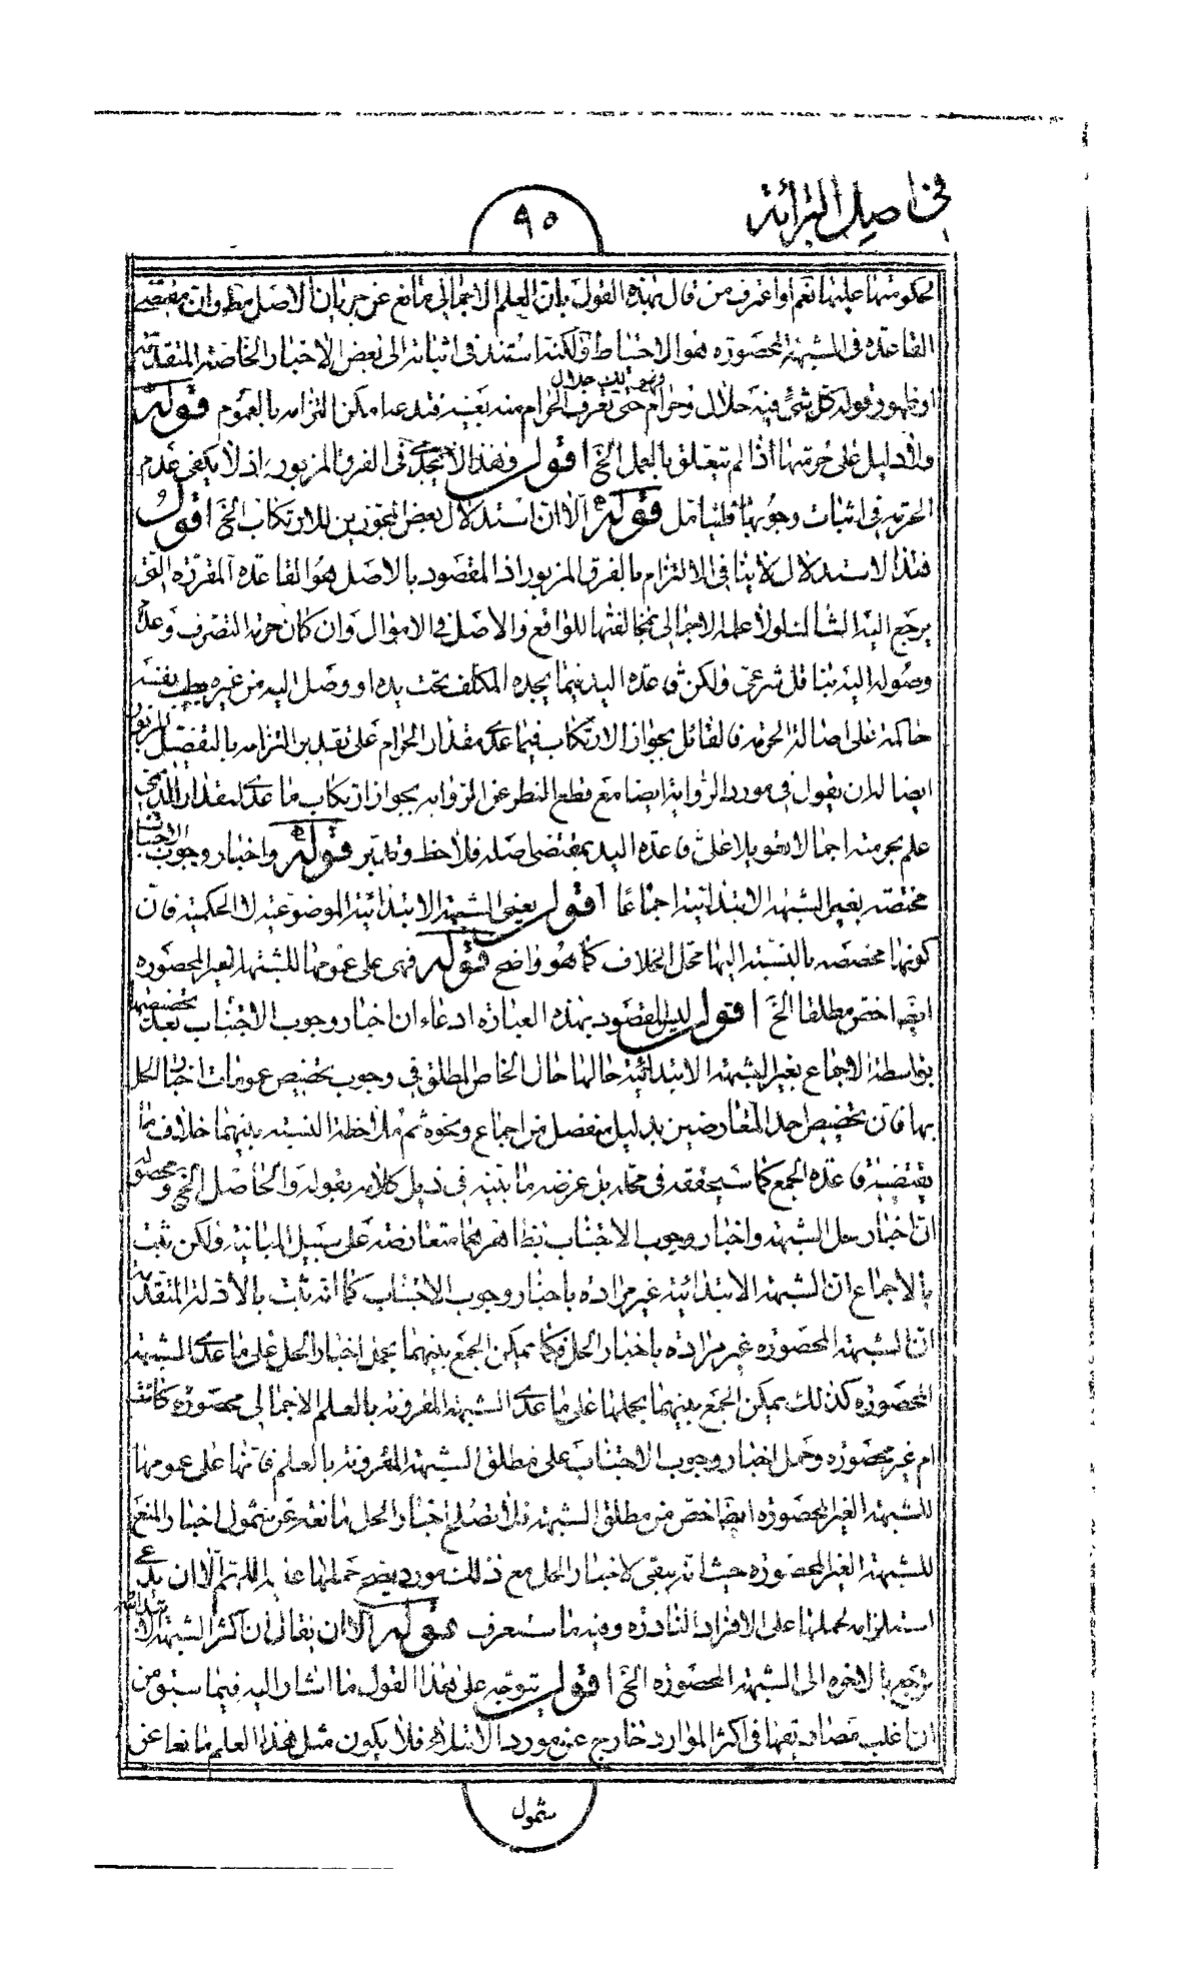 في اصل البرائة
٩٥
لحكومتها عليها نعم لو اعترف من قال بهذه القول بان العلم الاجمالي مانع عن جريان الاصل مط وان مقتضى
القاعده في الشبهة المحصورة هو الاحتياط ولكنه استند في اثباته الى بعض الاخبار الخاصة المتقدمة
او ظهور قوله كل شئ فيه حلال وحرام فهو لك حلال حتى تعرف الحرام منه بعينه فتدعه امكن التزامه بالعموم قوله
ولا دليل على حرمتها اذا لم يتعلق بالعمل الخ اقول وهذا لا يجدي في الفرق المزبور اذ لا يكفي عدم
الحرمة في اثبات وجوبها فليتامل قوله الا ان استدلال بعض المجوزين للارتكاب الخ اقول
هذا الاستدلال لا ينافي الالتزام بالفرق المزبور اذ المقصود بالاصل هو القاعدة المقررة التي
يرجع اليه الشاك لولا علمه الاجمالي بمخالفتها للواقع والاصل في الاموال وان كان حرمة التصرف وعدم
وصوله اليه بناقل شرعي ولكن قاعدة اليد فيما يجده المكلف تحت يده او وصل اليه من غيره بطيب نفسه
حاكمة على اصالة الحرمة فالقائل بجواز الارتكاب فيما عدا مقدار الحرام على تقدير التزامه بالتفصيل المزبور
ايضا له ان يقول في مورد الرواية ايضا مع قطع النظر عن الرواية بجواز ارتكاب ما عدا المقدار الذي
علم بحرمته اجمالا تعويلا على قاعدة اليد بمقتضى اصله فلاحظ وتدبر قوله واخبار وجوب الاجتناب
مختصة بغير الشبهة الابتدائية اجماعا اقول يعني الشبهة الابتدائية الموضوعية لا الحكمية فان
كونها مخصصة بالنسبة اليها محل الخلاف كما هو واضح قوله فهي على عمومها للشبهة الغير المحصورة
ايضا اخص مطلقا الخ اقول ليس المقصود بهذه العبارة ادعاء ان اخبار وجوب الاجتناب بعد تخصيصها
بواسطة الاجماع بغير الشبهة الابتدائية حالها حال الخاص المطلق في وجوب تخصيص عمومات اخبار الحل
بها فان تخصيص احد المتعارضين بدليل منفصل من اجماع ونحوه ثم ملاحظة النسبة بينهما خلاف ما
يقتضيه قاعدة الجمع كما سيحققه في محله بل غرضه ما بينه في ذيل كلامه بقوله والحاصل الخ ومحصله
ان اخبار حل الشبهة واخبار وجوب الاجتناب بظاهرهما متعارضة على سبيل المباينة ولكن ثبت
بالاجماع ان الشبهة الابتدائية غير مرادة باخبار وجوب الاجتناب كما انه ثبت بالادلة المتقدمة
ان الشبهة المحصورة غير مرادة باخبار الحل فكما يمكن الجمع بينهما بحمل اخبار الحل على ما عدا الشبهة
المحصورة كذلك يمكن الجمع بينهما بحملها على ما عدا الشبهة المقرونة بالعلم الاجمالي محصورة كانت
ام غير محصورة وحمل اخبار وجوب الاجتناب على مطلق الشبهة المقرونة بالعلم فانها على عمومها
للشبهة الغير المحصورة ايضا اخص من مطلق الشبهة فلا تصلح اخبار الحل مانعة عن شمول اخبار المنع
للشبهة الغير المحصورة حيث انه يبقى لاخبار الحل مع ذلك مورد يصح حملها عليه اللهم الا ان يدعى
استلزامه لحملها على الافراد النادرة وفيه ما ستعرف قوله الا ان يقال ان اكثر الشبهة الابتدائية
ترجع بالاخرة الى الشبهة المحصورة الخ اقول يتوجه على هذا القول ما اشار اليه فيما سبق من
ان اغلب مصاديقها في اكثر الموارد خارج عن مورد الابتلاء فلا يكون مثل هذا العلم مانعا عن
شمول